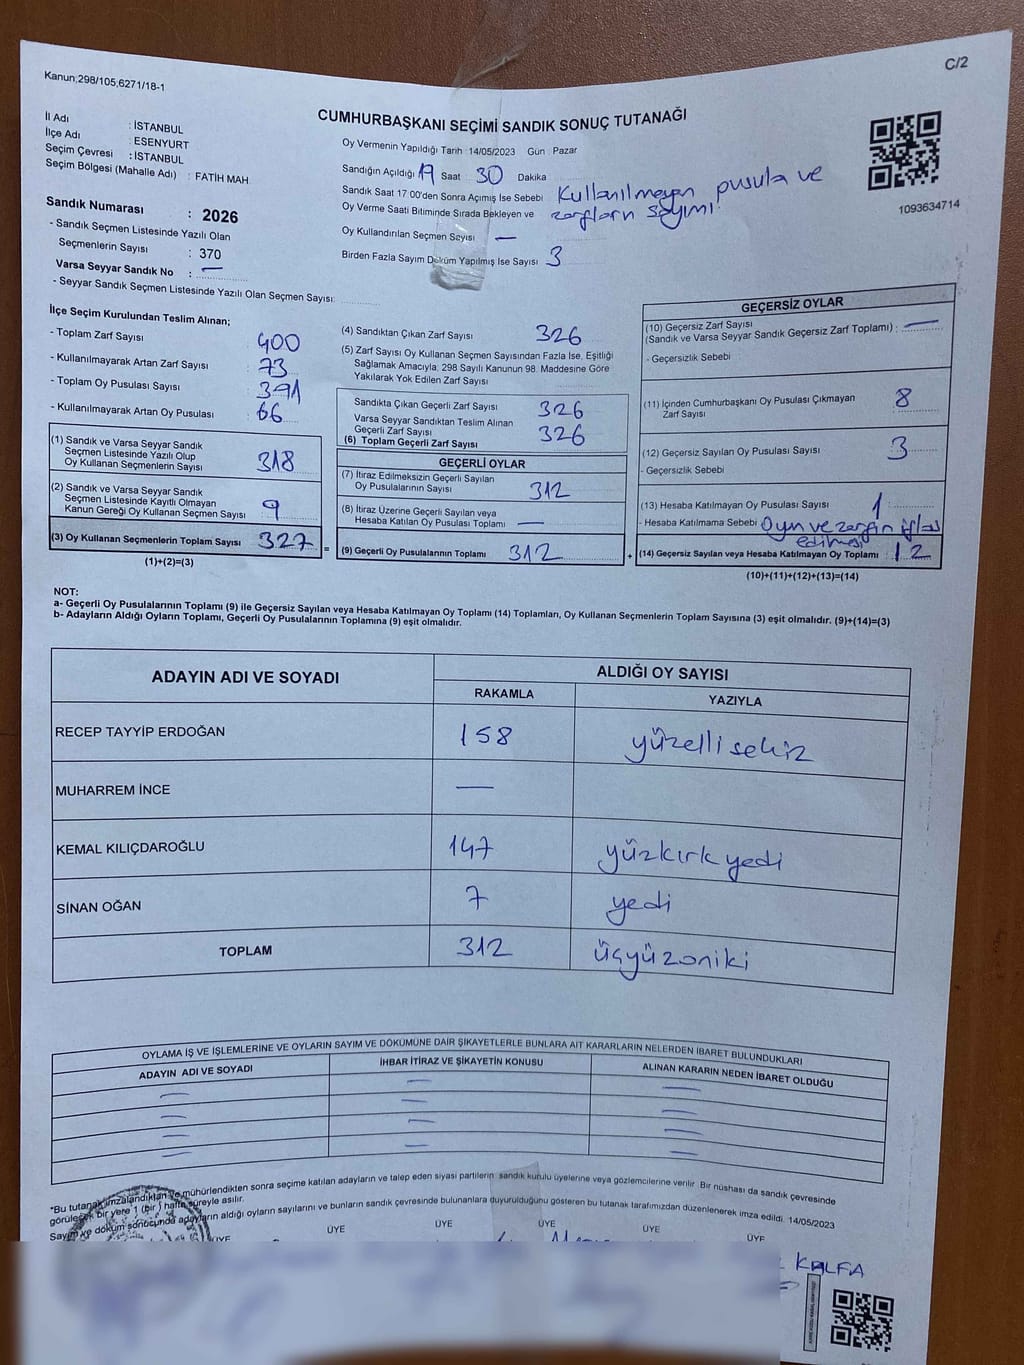 C/2
Kanun;298/105;6271/18-1
CUMHURBAŞKANI SEÇİMİ SANDIK SONUÇ TUTANAĞI
İl Adı : İSTANBUL
İlçe Adı : ESENYURT
Seçim Çevresi : İSTANBUL
Seçim Bölgesi (Mahalle Adı) : FATİH MAH
Sandık Numarası : 2026
- Sandık Seçmen Listesinde Yazılı Olan
Seçmenlerin Sayısı : 370
Varsa Seyyar Sandık No : —
- Seyyar Sandık Seçmen Listesinde Yazılı Olan Seçmen Sayısı:
Oy Vermenin Yapıldığı Tarih :14/05/2023 Gün : Pazar
Sandığın Açıldığı 19 Saat 30 Dakika
Sandık Saat 17:00'den Sonra Açımış İse Sebebi Kullanılmayan pusula ve
Oy Verme Saati Bitiminde Sırada Bekleyen ve zarfların sayımı.
Oy Kullandırılan Seçmen Sayısı —
Birden Fazla Sayım Döküm Yapılmış İse Sayısı 3
1093634714
İlçe Seçim Kurulundan Teslim Alınan;
- Toplam Zarf Sayısı : 400
- Kullanılmayarak Artan Zarf Sayısı : 73
- Toplam Oy Pusulası Sayısı : 391
- Kullanılmayarak Artan Oy Pusulası : 66
(1) Sandık ve Varsa Seyyar Sandık
Seçmen Listesinde Yazılı Olup
Oy Kullanan Seçmenlerin Sayısı : 318
(2) Sandık ve Varsa Seyyar Sandık
Seçmen Listesinde Kayıtlı Olmayan
Kanun Gereği Oy Kullanan Seçmen Sayısı : 9
(3) Oy Kullanan Seçmenlerin Toplam Sayısı : 327 =
(1)+(2)=(3)
(4) Sandıktan Çıkan Zarf Sayısı 326
(5) Zarf Sayısı Oy Kullanan Seçmen Sayısından Fazla İse, Eşitliği
Sağlamak Amacıyla; 298 Sayılı Kanunun 98. Maddesine Göre
Yakılarak Yok Edilen Zarf Sayısı
Sandıkta Çıkan Geçerli Zarf Sayısı 326
Varsa Seyyar Sandıktan Teslim Alınan
Geçerli Zarf Sayısı 326
(6) Toplam Geçerli Zarf Sayısı
GEÇERLİ OYLAR
(7) İtiraz Edilmeksizin Geçerli Sayılan
Oy Pusulalarının Sayısı 312
(8) İtiraz Üzerine Geçerli Sayılan veya
Hesaba Katılan Oy Pusulası Toplamı —
(9) Geçerli Oy Pusulalarının Toplamı 312 +
GEÇERSİZ OYLAR
(10) Geçersiz Zarf Sayısı
(Sandık ve Varsa Seyyar Sandık Geçersiz Zarf Toplamı) : —
- Geçersizlik Sebebi
(11) İçinden Cumhurbaşkanı Oy Pusulası Çıkmayan
Zarf Sayısı 8
(12) Geçersiz Sayılan Oy Pusulası Sayısı 3
- Geçersizlik Sebebi
(13) Hesaba Katılmayan Oy Pusulası Sayısı 1
- Hesaba Katılmama Sebebi Oyun ve zarfın iflas
edilmesi
(14) Geçersiz Sayılan veya Hesaba Katılmayan Oy Toplamı : 12
(10)+(11)+(12)+(13)=(14)
NOT:
a- Geçerli Oy Pusulalarının Toplamı (9) ile Geçersiz Sayılan veya Hesaba Katılmayan Oy Toplamı (14) Toplamları, Oy Kullanan Seçmenlerin Toplam Sayısına (3) eşit olmalıdır. (9)+(14)=(3)
b- Adayların Aldığı Oyların Toplamı, Geçerli Oy Pusulalarının Toplamına (9) eşit olmalıdır.
ADAYIN ADI VE SOYADI ALDIĞI OY SAYISI
RAKAMLA YAZIYLA
RECEP TAYYİP ERDOĞAN 158 yüzellisekiz
MUHARREM İNCE —
KEMAL KILIÇDAROĞLU 147 yüzkırkyedi
SİNAN OĞAN 7 yedi
TOPLAM 312 üçyüzoniki
OYLAMA İŞ VE İŞLEMLERİNE VE OYLARIN SAYIM VE DÖKÜMÜNE DAİR ŞİKAYETLERLE BUNLARA AİT KARARLARIN NELERDEN İBARET BULUNDUKLARI
ADAYIN ADI VE SOYADI İHBAR İTİRAZ VE ŞİKAYETİN KONUSU ALINAN KARARIN NEDEN İBARET OLDUĞU
— — —
— — —
— — —
— — —
*Bu tutanak imzalandıktan ve mühürlendikten sonra seçime katılan adayların ve talep eden siyasi partilerin sandık kurulu üyelerine veya gözlemcilerine verilir. Bir nüshası da sandık çevresinde
görülecek bir yere 1 (bir ) hafta süreyle asılır.
Sayım ve döküm sonucunda adayların aldığı oyların sayılarını ve bunların sandık çevresinde bulunanlara duyurulduğunu gösteren bu tutanak tarafımızdan düzenlenerek imza edildi. 14/05/2023
ÜYE ÜYE ÜYE ÜYE ÜYE ÜYE
KALFA